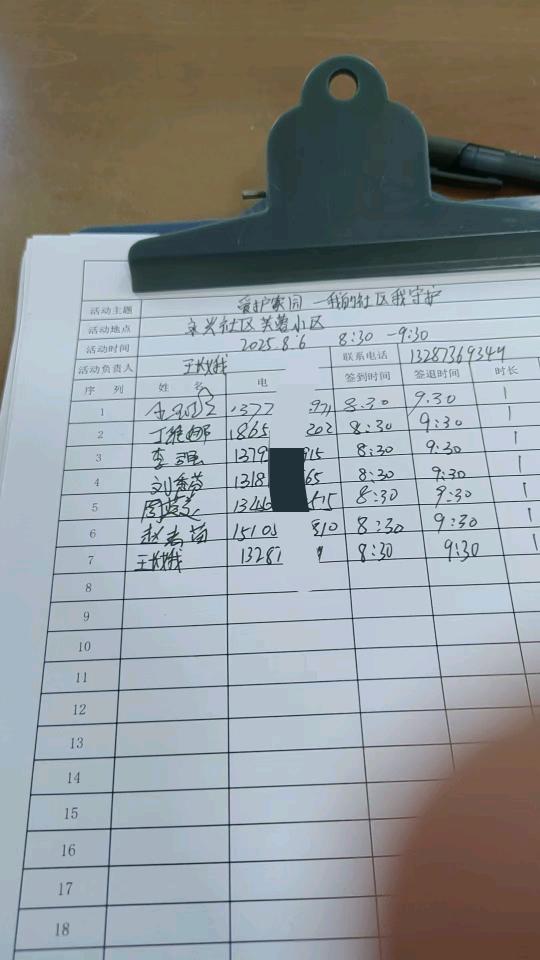 活动主题 爱护家园 一我的社区我守护
活动地点 社区芙蓉小区
活动时间 2025.8.6 8:30 -9:30
活动负责人 联系电话 13287369344
序 列 姓 名 电 签到时间 签退时间 时长
1 1377 8:30 9:30 1
2 1865 202 8:30 9:30 1
3 李强 1379 915 8:30 9:30 1
4 1318 65 8:30 9:30 1
5 8:30 9:30 1
6 15105 8:30 9:30 1
7 1328 8:30 9:30 1
8
9
10
11
12
13
14
15
16
17
18